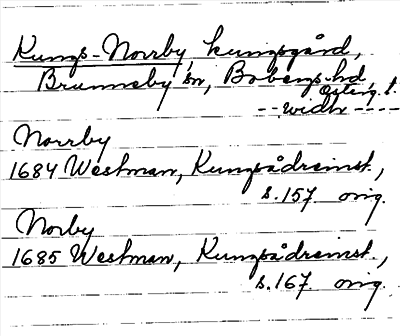 Kungs-Norrby kungsgård,
Brunneby sn, Bobergs hd
Österg. l.
-- widh ----
Norrby
1684 Westman, Kungsådreinst.,
s. 157. orig.
Norby
1685 Westman, Kungsådreinst.,
s. 167. orig.